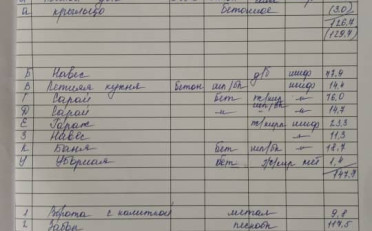 а крыльцо бетонное (3.0)
126,7
(129,7)
Б Навес д/б шиф 42,4
В Летняя кухня бетон шл/бл шиф 14,4
Г Сарай бет 76,0
Д Сарай 14,7
Е Гараж шиф 23,3
З Навес 11,3
К Баня бет шл/бл 18,7
У Уборная бет 1,4
1 Ворота с калиткой метал 9,8
2 Забор 117,5